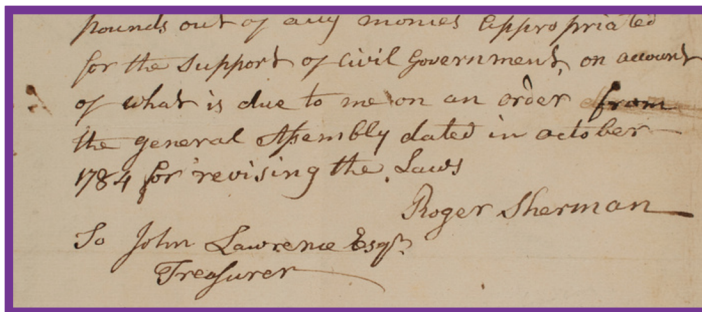 pounds out of any monies appropriated
for the Support of Civil Government, on account
of what is due to me on an order from
the general Assembly dated in october
1784 for revising the Laws
Roger Sherman
To John Lawrence Esqr.
Treasurer